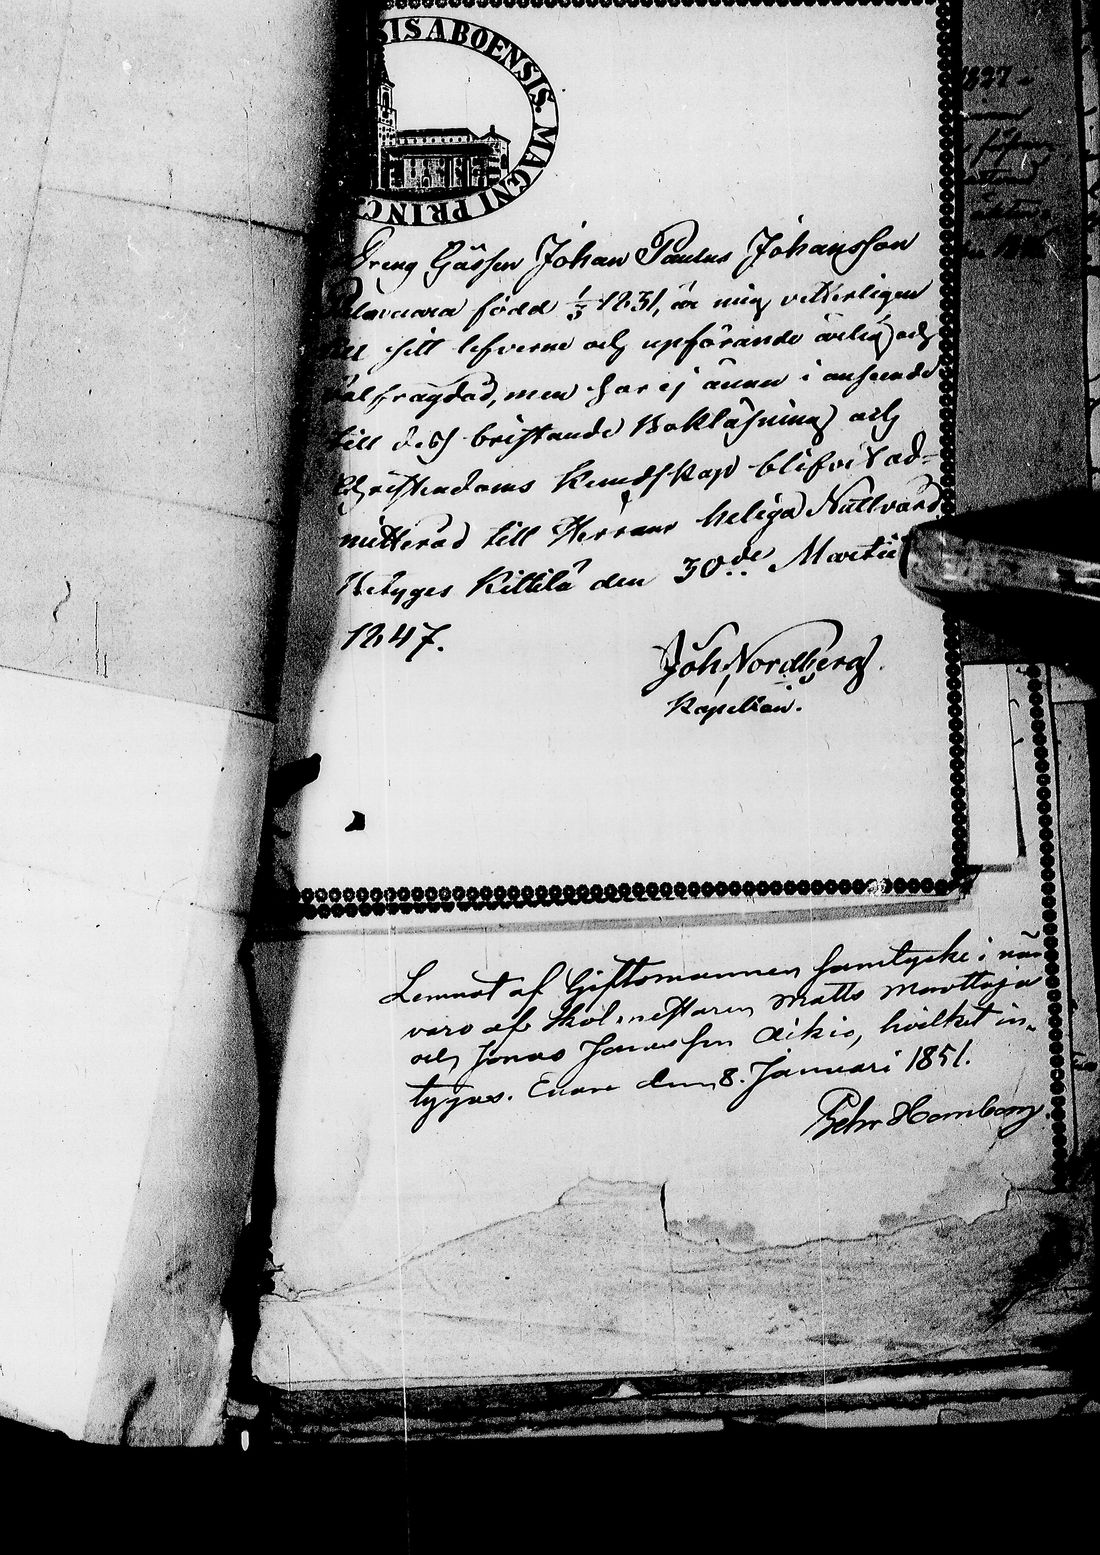 SIS ABOENSIS. MAGNI PRINC
Dreng Gåssen Johan Paulus Johansson
född 1/5 1831, är mig vetterligen
till sitt lefverne och upförande ärlig och
välfrägdad, men har ej ännu i anseende
till dess bristande Bokläsning och
Christendoms Kundskap blifvit ad-
mitterad till Herrans heliga Nattvard
Betygas Kittilä den 30de Martii
1847.
Joh, Nordberg
Kapellan.
Lemnat af Giftomannen samtycke i när
varo af Skolmestaren Matts Morottaja
och Jonas Jonasson Aikio, hvilket in-
tygas. Enare den 8. Januari 1851.
1827